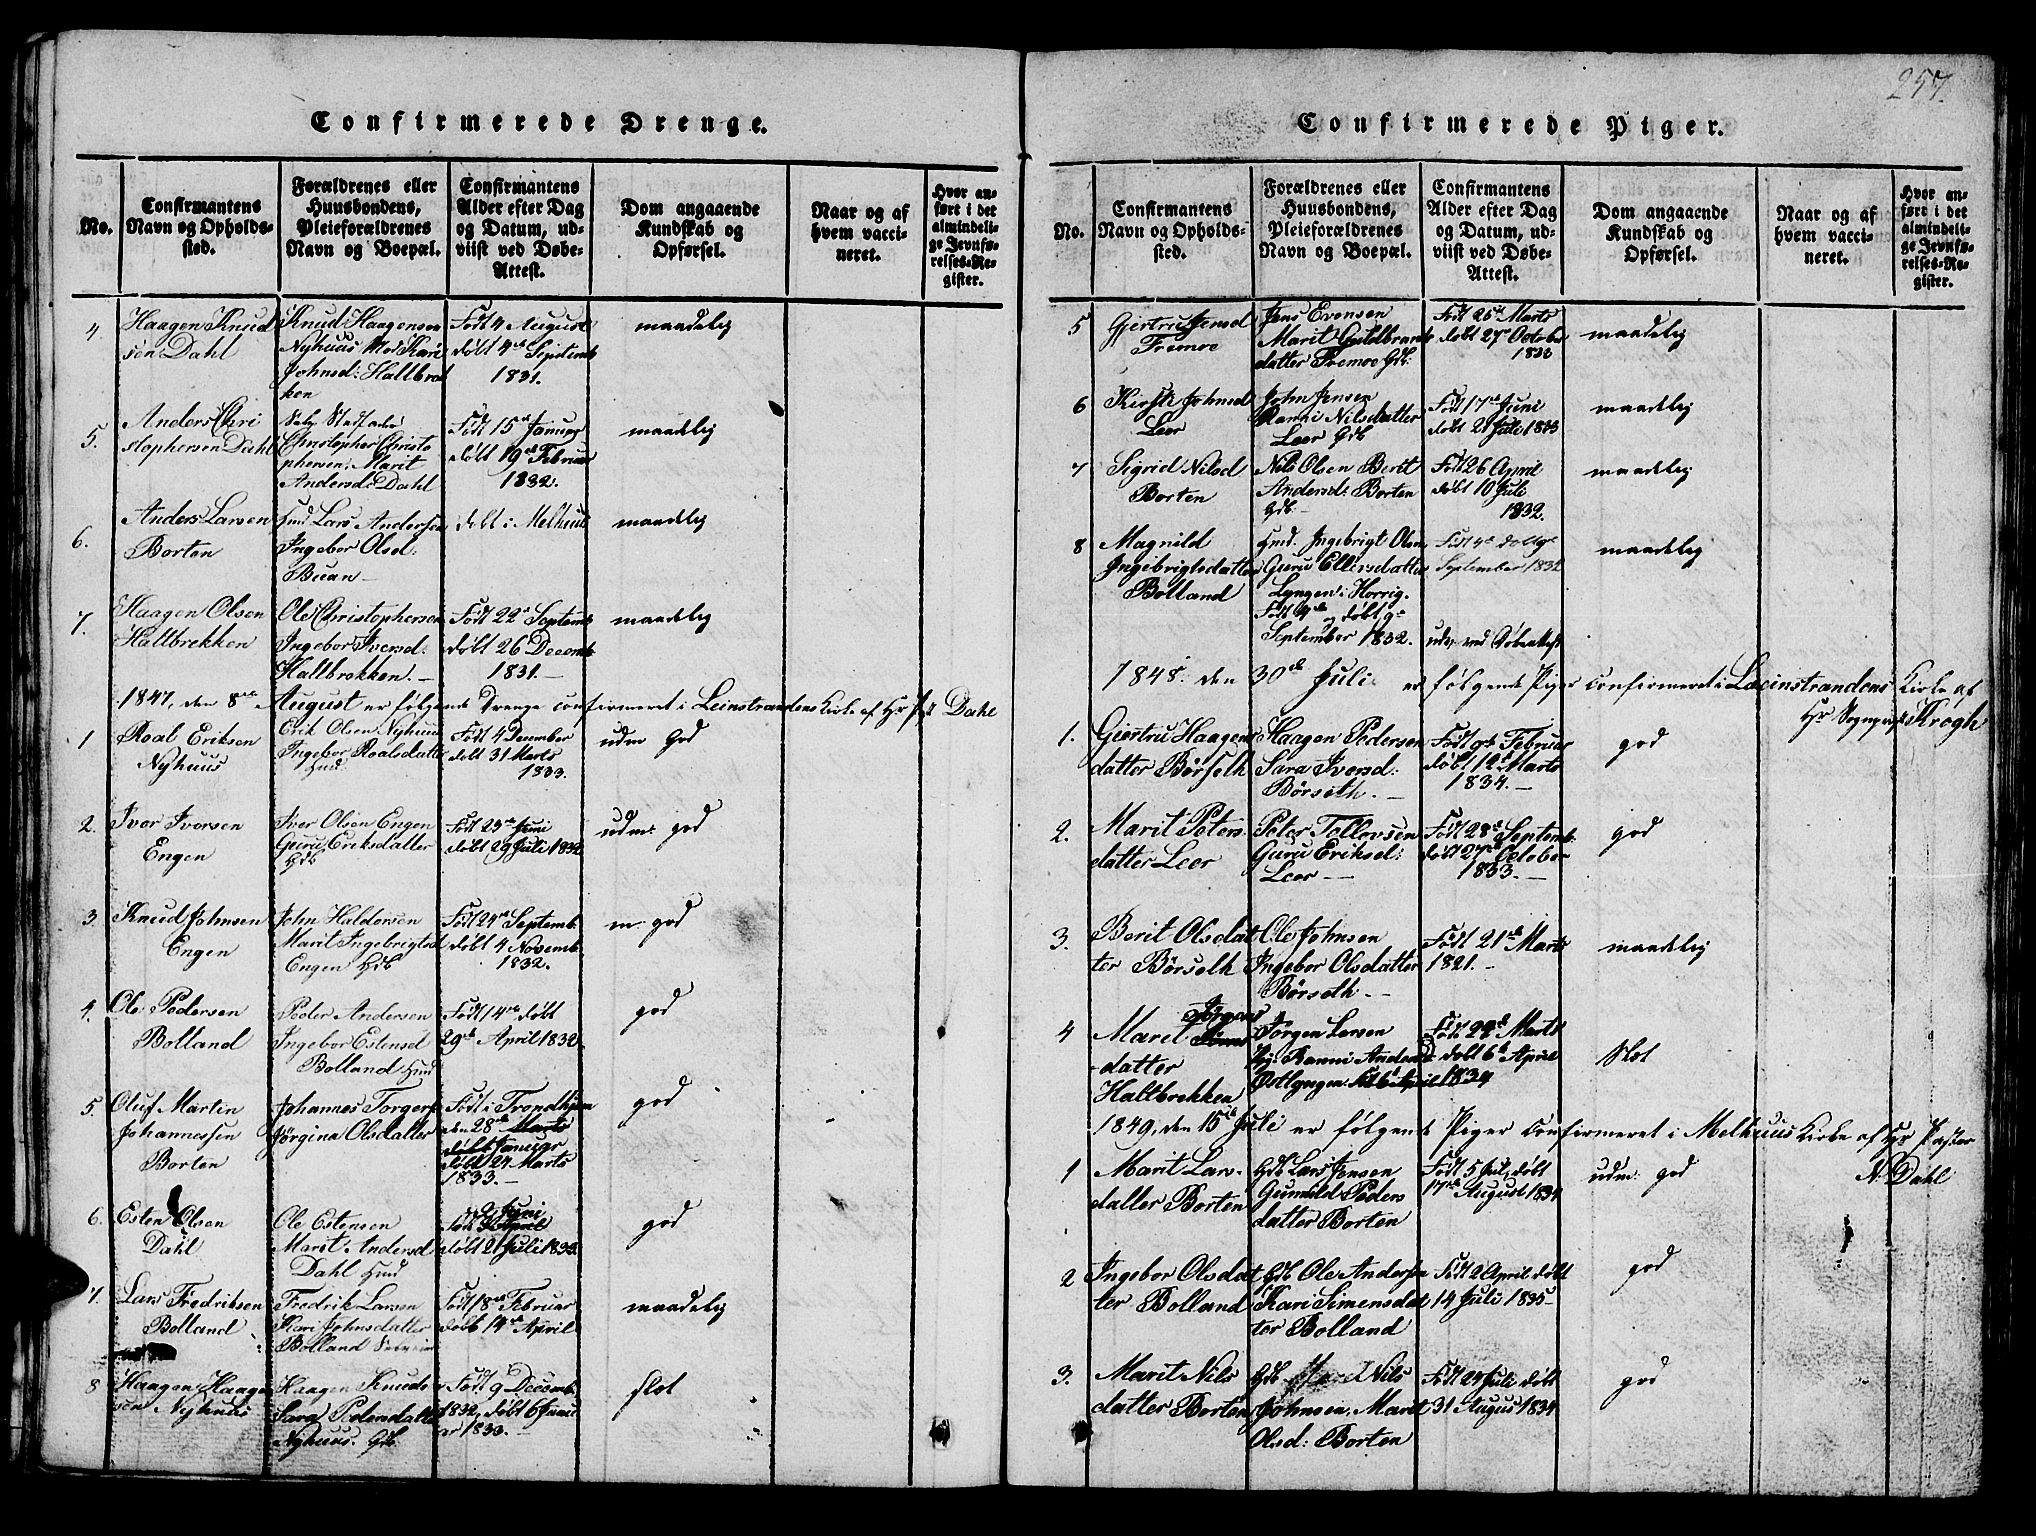 257.
Confirmerede Drenge.
No.
Confirmantens Navn og Opholds-sted.
Forældrenes eller Huusbondens, Pleieforældrenes Navn og Boepæl.
Confirmantens Alder efter Dag og Datum, ud-viist ved Døbe-Attest.
Dom angaaende Kundskab og Opførsel.
Naar og af hvem vacci-neret.
Hvor an-ført i det almindeli-ge Jevnfø-relses-Re-gister.
4
Haagen Knud
sen Dahl
Knud Haagensen
Nyhuus Mod Kari
Johnsd: Hallbræk
ken
Født 4 August
døbt 4de Septemb
1831.
maadelig
5.
Anders Chri
stophersen Dahl
Christopher Christo
phersen, Marit
Andersd: Dahl
Født 15de Januar
døbt 19de Februar
1832.
maadelig
6.
Anders Larsen
Borten
Hmd Lars Andersen
Ingebor Olsd:
Buan —
døbt i Melhuus
maadelig
7.
Haagen Olsen
Hallbrekken
Ole Christophersen
Ingebor Iversd:
Hallbrekken. —
Født 22de Septemb
døbt 26 Decemb
1831. —
maadelig
1847, den 8de August er følgende Drenge confirmeret i Leinstrandens Kirke af Hr Pst Dahl
1
Roal Eriksen
Nyhuus
Erik Olsen Nyhuus
Ingebor Roalsdatter
Hmd.
Født 4 December
døbt 31 Marts
1833.
udm God
2.
Iver Iversen
Engen
Iver Olsen Engen
Guru Eriksdatter
Gdb
Født 23de Juni
døbt 29 Juli 1832
udm: god
3
Knud Johnsen
Engen
John Haldorsen
Marit Ingebrigtsd
Engen Gdb
Født 24de Septemb.
døbt 4 Novemb.
1832.
m god
4.
Ole Pedersen
Bolland
Peder Andersen
Ingebor Estensd
Bolland Hmd
Født 14de døbt
29de April 1832
god
5.
Oluf Martin
Johannessen
Borten
Johannes Torgers
Jørgina Olsdatter
Født i Trondhjem
den 28de Marts
døbt Januar
døbt 24 Marts
1833. —
god
6.
Esten Olsen
Dahl
Ole Estensen
Marit Andersd
Dahl Hmd
2 Juni
Født April
døbt 21 Juli 1833.
god
7.
Lars Fredriksen
Bolland
Fredrik Larsen
Kari Johnsdatter
Bolland
Født 18de Februar
døbt 14de April
maadelig
8
Haagen Haagen
sen Nyhuus
Haagen Knuds
Sara Pedersdatter
Nyhuus. Gdb
Født 9 Decemb.
1832, døbt 6 Janu
ar 1833. —
slet
Confirmerede Piger.
No.
Confirmantens Navn og Opholds-sted.
Forældrenes eller Huusbondens, Pleieforældrenes Navn og Boepæl.
Confirmantens Alder efter Dag og Datum, ud-viist ved Døbe-Attest.
Dom angaaende Kundskab og Opførsel.
Naar og af hvem vacci-neret.
Hvor an-ført i det almindeli-ge Jevnfø-relses-Re-gister.
5
Gjertru Jensd
Fremoe
Jens Evensen
Marit Guldbrands
datter Fremoe Gdb:
Født 25de Marts
døbt 27 October
1833
maadelig
6
Kirsti Johnsd
Leer
John Jensen
Ranni Nilsdatter
Leer Gdb
Født 17de Juni
døbt 21 Juli 1833
maadelig
7
Sigrid Nilsd
Borten
Nils Olsen Berit
Andersd: Borten
Gdb —
Født 26 April
døbt 10 Juli
1832.
maadelig
8
Magnild
Ingebrigtsdatter
Bolland
Hmd. Ingebrigt Olsen
Guru Ellersdatter
Lyngen i Horrig.
Født 4de og døbt 9de
September 1832.
Født 4de døbt 9
September 1832
udv. ved Døbeattest
maadelig
1848. den 30de Juli er følgende Piger confirmeret i Leinstrandens Kirke af
Hr Sognepræst Krogh
1.
Giertru Haagens
datter Børseth
Haagen Pedersen
Sara Iversd:
Børseth. —
Født 9de Februar
døbt 12de Marts
1834. —
god
2.
Marit Peters
datter Leer
Peter Tollevsen
Guru Eriksd:
Leer —
Født 28de Septemb.
døbt 27de October
1833. —
god
3.
Berit Olsdat
ter Børseth
Ole Johnsen
Ingebor Olsdatter
Børseth. —
Født 21de Marts
1821. —
maadelig
4
Maret Jørgens
datter
Haltbrekken
Jørgen Larsen
Ranni Anders
Østlyngen
Født 22de Marts
døbt 6te April
1834
Slet
1849, den 15de Juli er følgende Piger confirmeret i Melhuus Kirke af Hr Pastor
N. Dahl
1
Marit Lars-
datter Borten
Gdb Lars Jensen
Gunnild Peders
datter Borten
Født 5 Juli døbt
17de August 1834
udm: god
2
Ingebor Olsdat
ter Bolland
Gdb Ole Andersen
Kari Simensdat
ter Bolland
Født 2 April døbt
14 Juli 1835
god
3.
Marit Nils
datter Borten
Gdb Nils
Johnsen, Maret
Olsd: Borten
Født 24 Juli døbt
31 Augus 1834
god